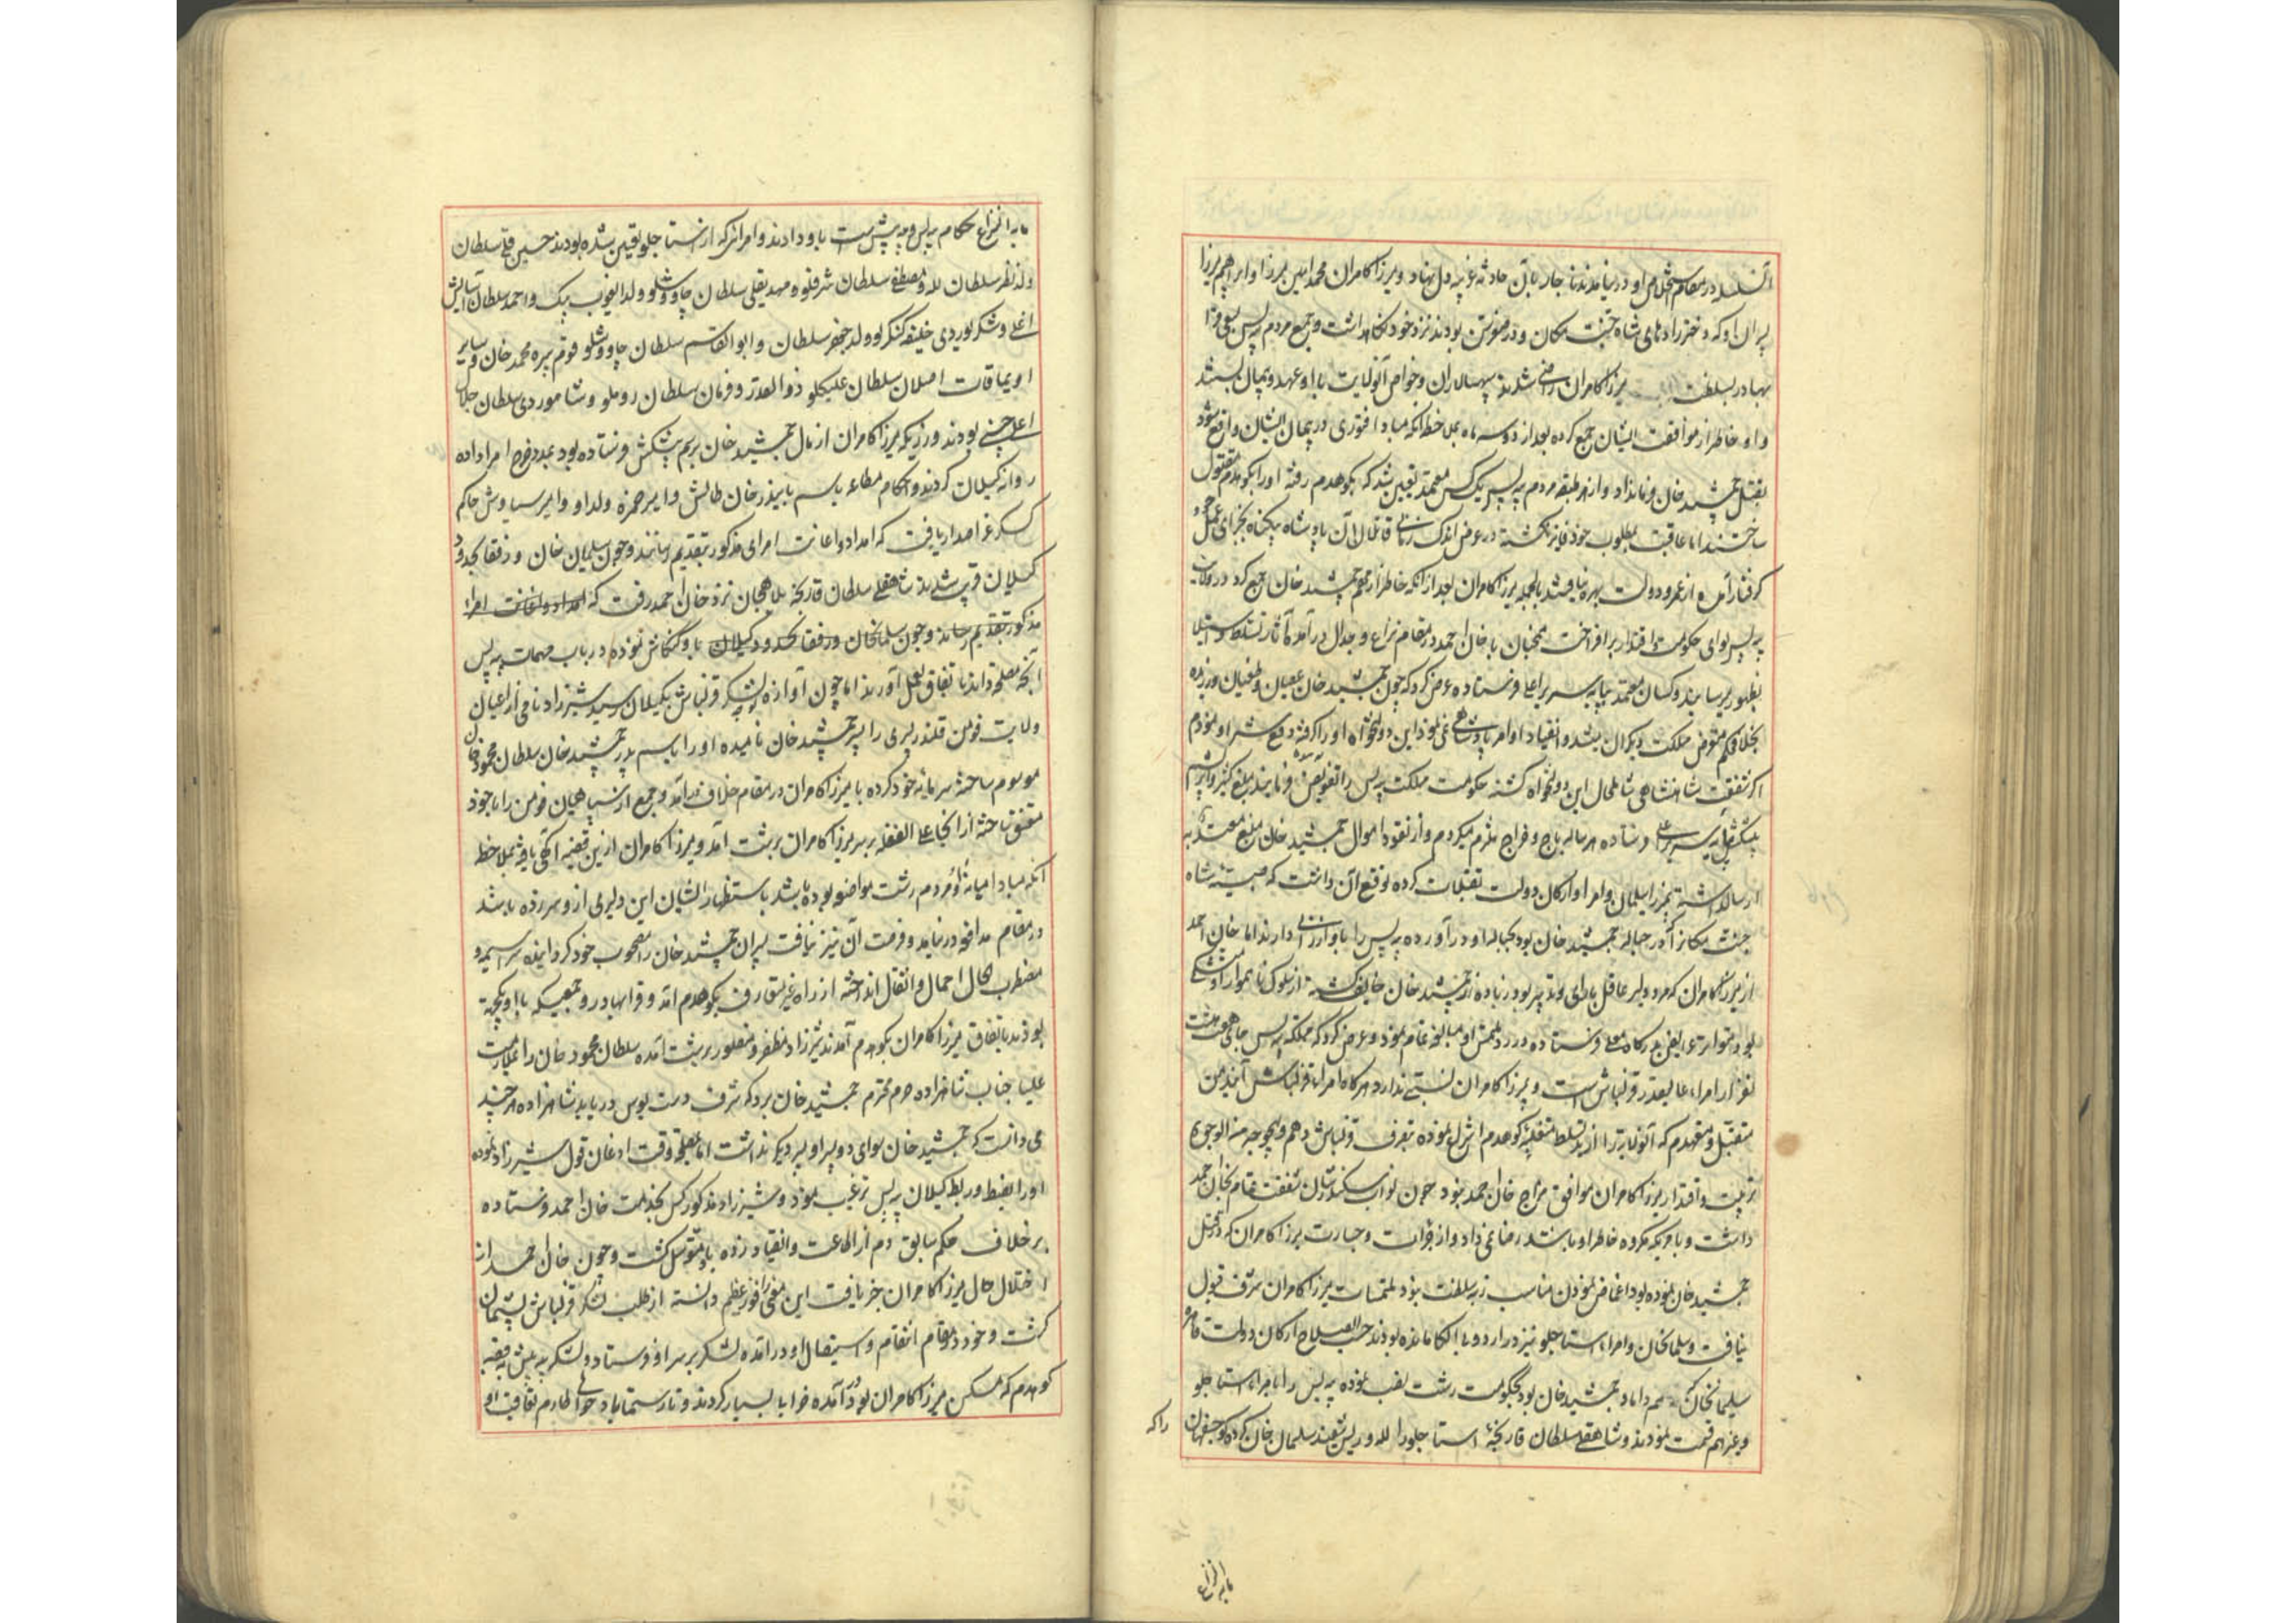 آن سلسله در مقام استخلاص او در نیامدند ناچار بآن حادثه غریبه دل نهاد و میرزا کامران محمد امین میرزا و ابراهیم میرزا
پسران او که دخترزادهای شاه جنت مکان و در فومن بودند نزد خود نگاهداشت و جمیع مردم بیه پس بسعی قرا
بهادر بسلطنت میرزا کامران راضی شدند سپهسالاران و خواص آنولایت با او عهد و پیمان بستند
و او خاطر از موافقت ایشان جمع کرده بعد از دو سه ماه بملاحظه آنکه مبادا فتوری در پیمان ایشان واقع شود
بقتل جمشید خان فرمانداد و از هر طبقه مردم بیه پس یک کس معتمد تعیین شد که بکوهدم رفته او را بکوهدم مقتول
ساختند اما عاقبت بمطلوب خود فایز نگشته در عرض اندک زمانی قاتلان آن پادشاه بیگناه بجزای عمل خود
گرفتار آمده از عمر و دولت بهره نیافتند بالجمله میرزا کامران بعد از آنکه خاطر از مهم جمشید خان جمع کرد در ولایت
بیه پس لوای حکومت و اقتدار برافراخت همچنان با خان احمد در مقام نزاع و جدال درآمده آثار تسلط و استیلا
بظهور میرسانید و کسان معتمد بپایه سریر اعلی فرستاده عرض کرد که چون جمشید خان عصیان و طغیان ورزیده
بخلاف حکم متعرض مملکت دیگران میشد و انقیاد اوامر پادشاهی نمی نمود این دولتخواه او را گرفته دفع شر او نمودم
اگر شفقت شاهنشاهی شامل حال این دولتخواه گشته حکومت مملکت بیه پس را تفویض فرمایند مبلغ کثیر و ابریشم
پیشکش بپایه سریر اعلی فرستاده هر ساله باج و خراج ملتزم میگردم و از نقود اموال جمشید خان مبلغ معتد به
ارسالداشته بمیرزا سلمان و امرا و ارکان دولت تقبلات کرده توقع آن داشت که صبیه شاه
جنت مکانرا که در حباله جمشید خان بود بحباله او درآورده بیه پس را باو ارزانی دارند اما خان احمد
از میرزا کامران که مرد دلیر عاقل با رای و تدبیر بود زیاده از جمشید خان خایف گشته از سلوک ناهموار او متشکی
بود و متواتر عرایض بدرگاه معلی فرستاده در رد ملتمس او مبالغه تمام نمود و عرض کرد که مملکت بیه پس جای هفت هشت
نفر از امراء عالیقدر قزلباش است و میرزا کامران نسبتی ندارد هرگاه امراء قزلباش آیند من
متقبل و متعهدم که آنولایترا از ید تسلط متغلبه کوهدم انتزاع نموده بتصرف قزلباش دهم و بهیچوجه من الوجوه
تربیت و اقتدار میرزا کامران موافق مزاج خان احمد نبود چون نواب سکندر شان شفقت تمام بخان احمد
داشت و بامریکه مکروه خاطر او باشد رضا نمی داد و از جرأت و جسارت میرزا کامران که در قتل
جمشید خان نموده بود اغماض نمودن مناسب رتبه سلطنت نبود ملتمسات میرزا کامران شرف قبول
نیافت و سلمانخان و امراء استاجلو نیز در اردو بی الکا مانده بودند حسب الصلاح ارکان دولت قاهره
سلیمانخان که هم داماد جمشید خان بود بحکومت رشت نصب نموده بیه پس را بامراء استاجلو
و غیرهم قسمت نمودند و شاهقلی سلطان قارنجه استاجلو را لله و ریش سفید سلمان خان کرده کوچصفهان
را که
مابه النزاع
مابه النزاع حکام بیه پس و بیه پیش است باو دادند و امرائی که از استاجلو تعیین شده بودند حسین قلی سلطان
ولد نظر سلطان لله و مصطفی سلطان شرفلو و مهدیقلی سلطان چاووشلو ولد ایغوب بیک و احمد سلطان آسایش
اغلی و شکر اویردی خلیفه کنگرلو ولد جعفر سلطان و ابوالقاسم سلطان چاووشلو قوم پیره محمد خان و سایر
اویماقات اصلان سلطان علیکلو ذوالقدر و فرمان سلطان روملو و شاموردی سلطان جلال
اغلی چنی بودند و زریکه میرزا کامران از مال جمشید خان برسم پیشکش فرستاده بود بمدد خرج امرا داده
روانه گیلان کردند و احکام مطاعه باسم بایندر خان طالش و امیر حمزه ولد او و امیر سیاوش حاکم
گسکر عز اصدار یافت که امداد و اعانت امرای مذکور بتقدیم رسانند و چون سلیمان خان و رفقا بحدود
گیلان قریب شدند شاهقلی سلطان قارنجه بلاهجان نزد خان احمد رفت که امداد و اعانت امراء
مذکور بتقدیم رساند و چون سلمانخان و رفقا بحدود گیلان باو کنکاش نموده در باب مهمات بیه پس
آنچه مصلحت دانند باتفاق بعمل آورند اما چون آوازه توجه لشکر قزلباش بگیلان رسید شیرزاد نامی از اعیان
ولایت فومن قلندر پسری را پسر جمشید خان نامیده او را باسم پدر جمشید خان سلطان محمود خان
موسوم ساخته سرمایه خود کرده با میرزا کامران در مقام خلاف درآمد و جمع از سپاهیان فومن را با خود
متفق ساخته از آنجا علی الغفله بر سر میرزا کامران برشت آمد و میرزا کامران ازین قضیه آگهی یافته بملاحظه
آنکه مبادا میانه او و مردم رشت مواضعه بوده باشد باستظهار ایشان این دلیری از و سر زده باشد
در مقام مدافعه در نیامد و فرصت آن نیز نیافت پسران جمشید خان را مصحوب خود گردانیده سراسیمه و
مضطرب الحال احمال و اثقال انداخته از راه غیر متعارف بکوهدم آمد و قرا بهادر و جمعیکه با او یکجهت
بودند باتفاق میرزا کامران بکوهدم آمدند شیرزاد مظفر و منصور برشت آمده سلطان محمود خان را بملازمت
علیا جناب شاهزاده حرم محترم جمشید خان برد که شرف دست بوس دریابد شاهزاده هر چند
می دانست که جمشید خان سوای دو پسر او پسر دیگر نداشت اما بمصلحت وقت اذعان قول شیرزاد نموده
او را بضبط و ربط گیلان بیه پس ترغیب نمود و شیرزاد مذکور کس بخدمت خان احمد فرستاده
بر خلاف حکم سابق دم از اطاعت و انقیاد زده باو متوسل گشت و چون خان احمد از
اختلال حال میرزا کامران خبر یافت این معنی را فوز عظیم دانسته از طلب لشکر قزلباش پشیمان
گشت و خود در مقام انتقام و استیصال او درآمده لشکر بر سر او فرستاد و لشکر بیه پیش بقصبه
کوهدم که مسکن میرزا کامران بود درآمده خرابی بسیار کردند و تا رستماباد حوالی طارم تعاقب او